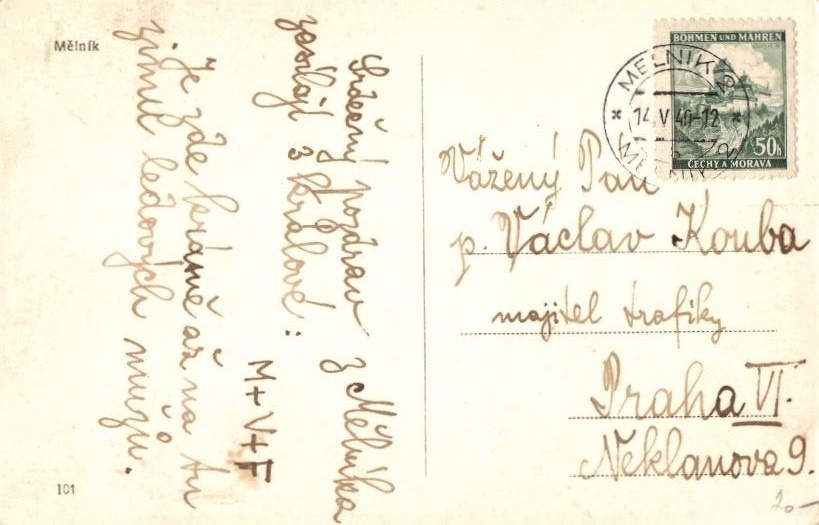 Mělník
Srdečný pozdrav z Mělníka
zasílají 3 králové:
M+V+F
Je zde krásně až na tu
zimu ledových mužů.
101
BÖHMEN UND MÄHREN
50h
ČECHY A MORAVA
MĚLNÍK 2
14.V.40-12
MELNIK 2
Vážený Pan
p. Václav Kouba
majitel trafiky
Praha VI.
Neklanova 9.
20-